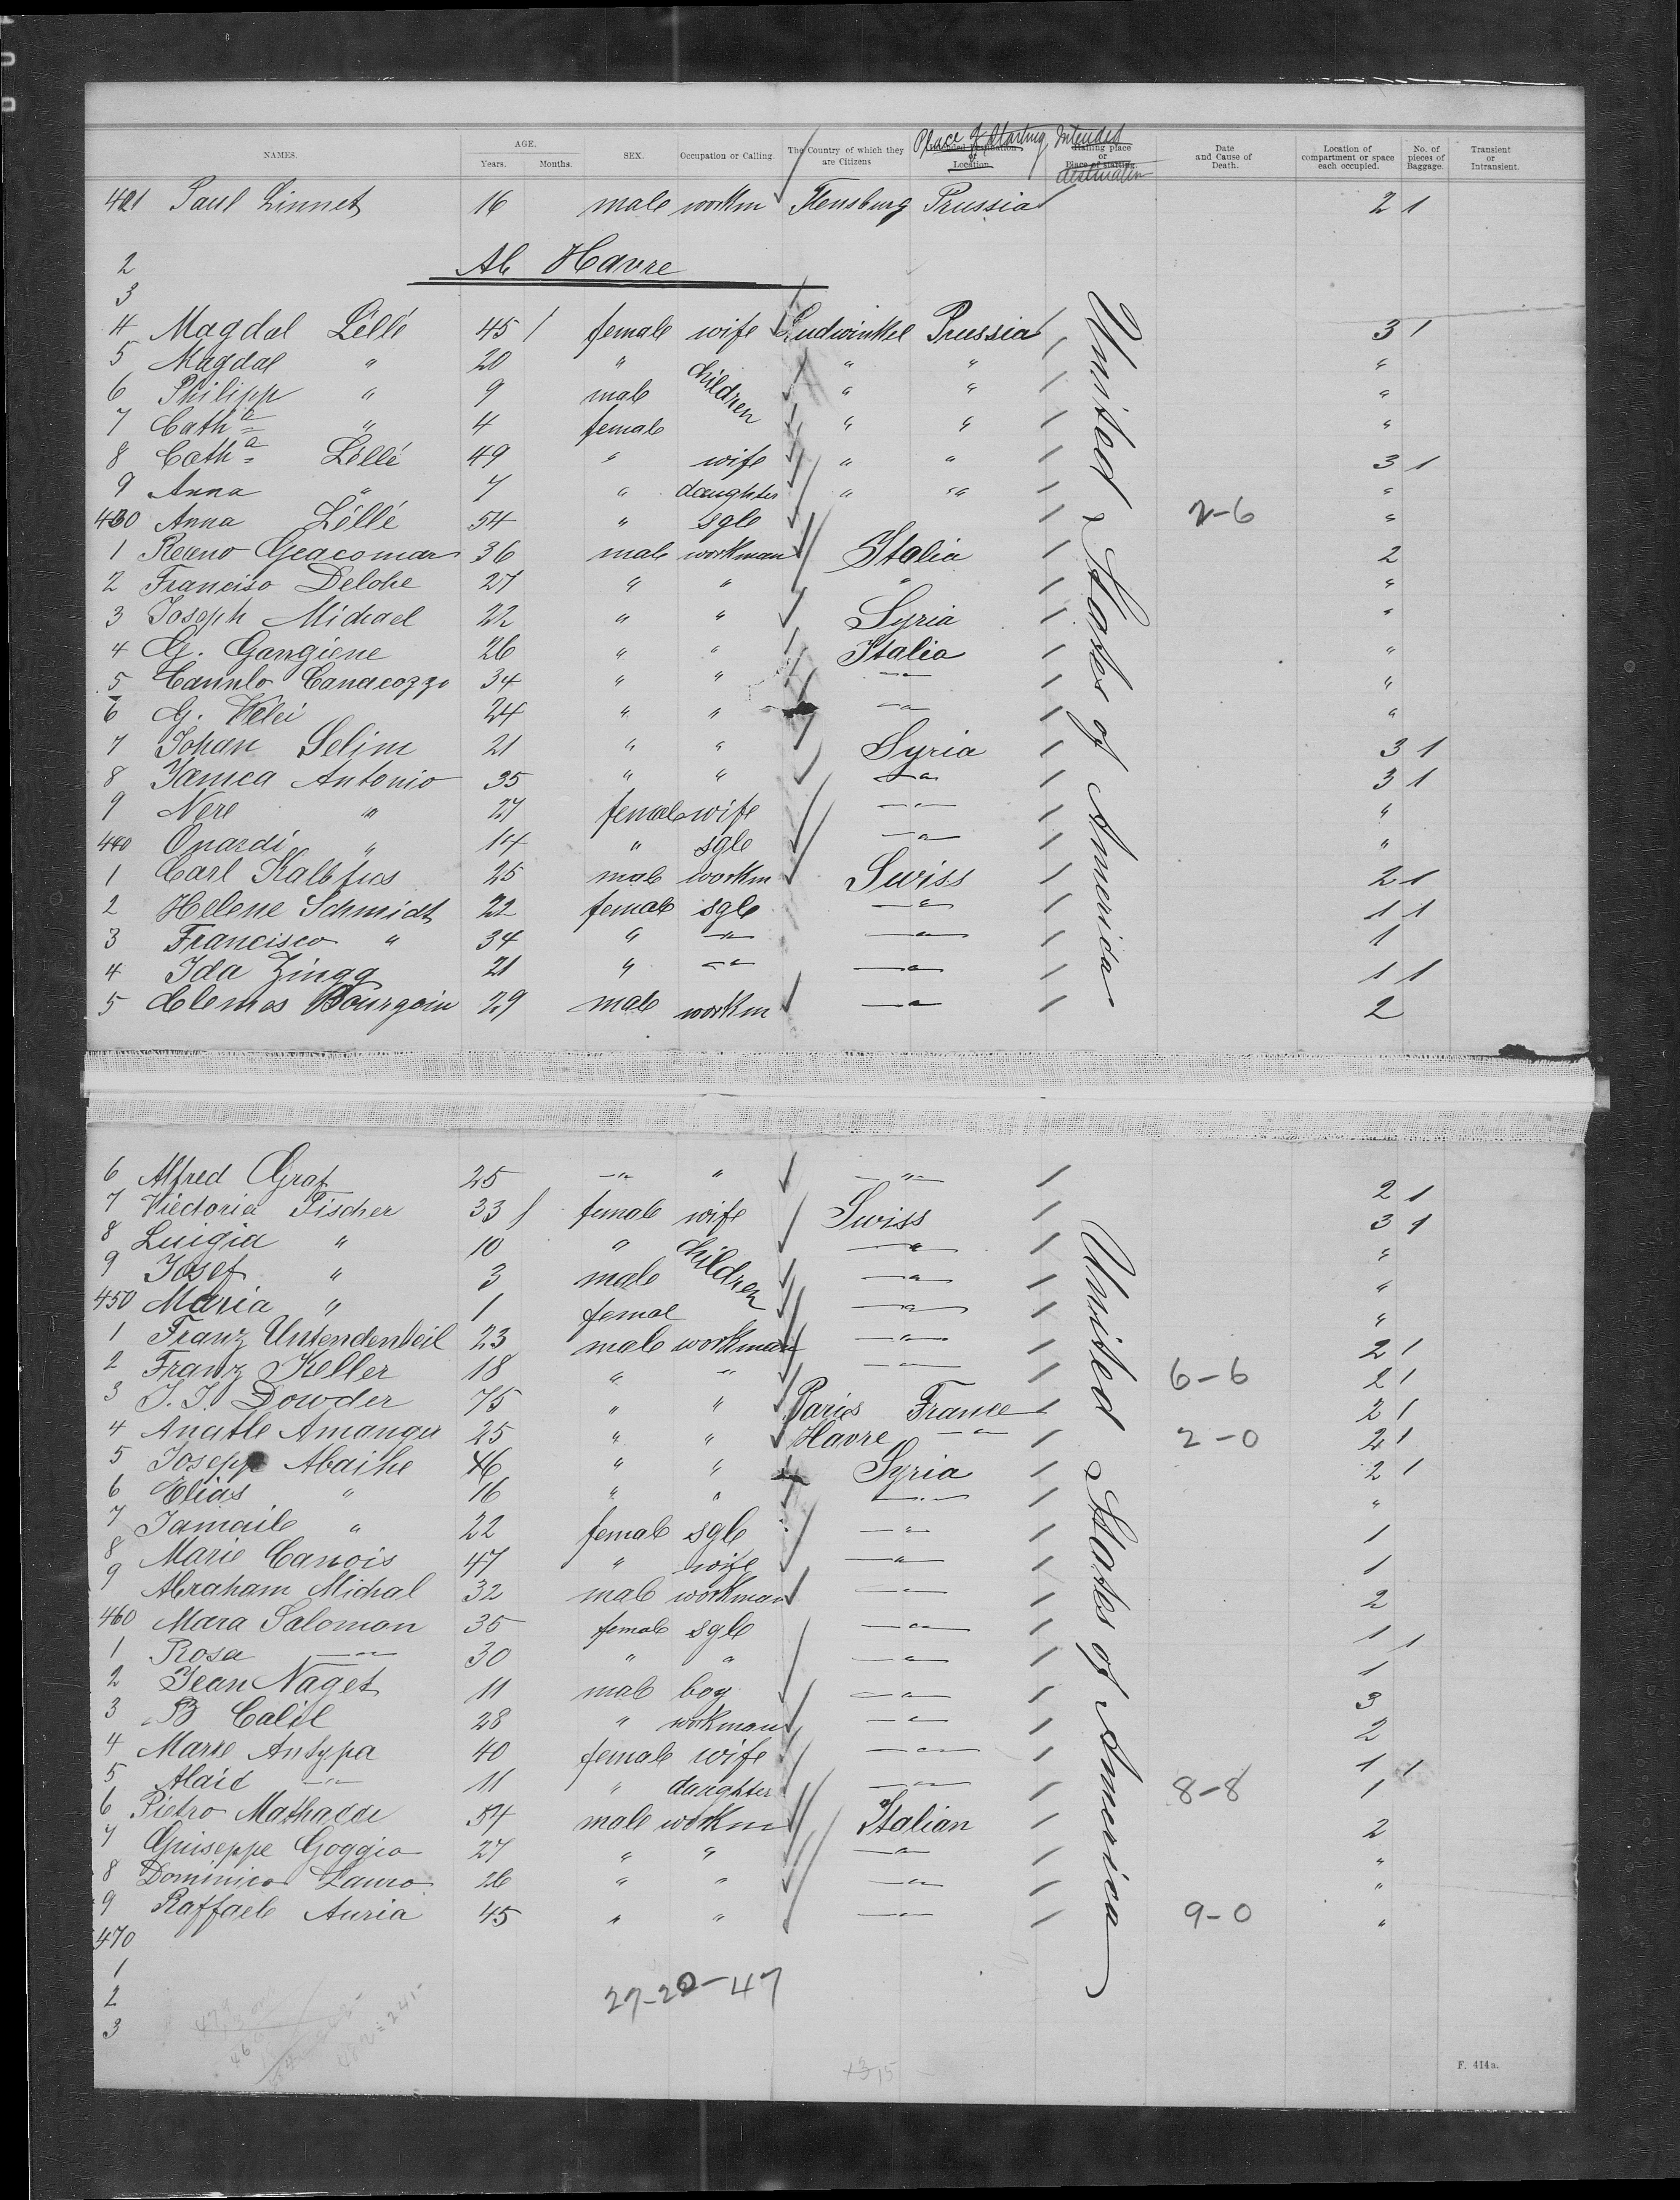 NAMES. AGE. Years. Months. SEX. Occupation or Calling. The Country of which they are Citizens Place of Starting Location. Intended Place of starting. destination Date and Cause of Death. Location of compartment or space each occupied. No. of pieces of Baggage. Transient or Intransient.
421 Paul Linnet 16 male workm Flensburg Prussia 2 1
2 Ab Havre
3
4 Magdal Léllé 45 female wife Ludwinkel Prussia 3 1
5 Magdal " 20 " children " " "
6 Philipp " 9 male " " "
7 Cath a " 4 female " " "
8 Cath a Léllé 49 " wife " " 3 1
9 Anna " 7 " daughter " " "
430 Anna Léllé 54 " sgle 2-6 "
1 Receno Geacomar 36 male workman Italia 2
2 Franciso Delohe 27 " " " "
3 Joseph Michael 22 " " Syria "
4 G. Gangiene 26 " " Italia "
5 Canulo Canacozzo 34 " " " "
6 G. Velei 24 " " " "
7 Johan Selim 21 " " Syria 3 1
8 Jamea Antonio 35 " " " 3 1
9 Nere " 27 female wife " "
440 Onardi " 14 " sgle " "
1 Carl Kalbfus 25 male workm Swiss 2 1
2 Helene Schmidt 22 female sgle " 1 1
3 Francisco " 34 " " " 1
4 Ida Zingg 21 " " " 1 1
5 Clemes Bourgoin 29 male workm " 2
United States of America
6 Alfred Graf 25 " " " 2 1
7 Viectoria Fischer 33 female wife Swiss 3 1
8 Luigia " 10 " children " "
9 Josef " 3 male " "
450 Maria " 1 femal " "
1 Franz Untendenbeil 23 male workman " 2 1
2 Franz Keller 18 " " " 6-6 2 1
3 J. J. Dowder 75 " " Paris France 2 1
4 Anatle Amanger 25 " " Havre " 2-0 2 1
5 Josepp Abaihe 46 " " Syria 2 1
6 Elias " 16 " " " "
7 Jamaile " 22 female sgle " 1
8 Marie Canois 47 " wife " 1
9 Abraham Michal 32 male workman " 2
460 Mara Salomon 35 female sgle " 1 1
1 Rosa " 30 " " " 1
2 Jean Naget 11 male boy " 3
3 B Calil 28 " workman " 2
4 Marie Antypa 40 female wife " 1 1
5 Alaid " 11 " daughter " 8-8 1
6 Pietro Mathadde 54 male workm Italian 2
7 Guiseppe Goggio 27 " " " "
8 Dominico Lauro 26 " " " "
9 Raffaele Auria 45 " " " 9-0 "
United States of America
470
1
2 27-20-47
3
F. 414a.